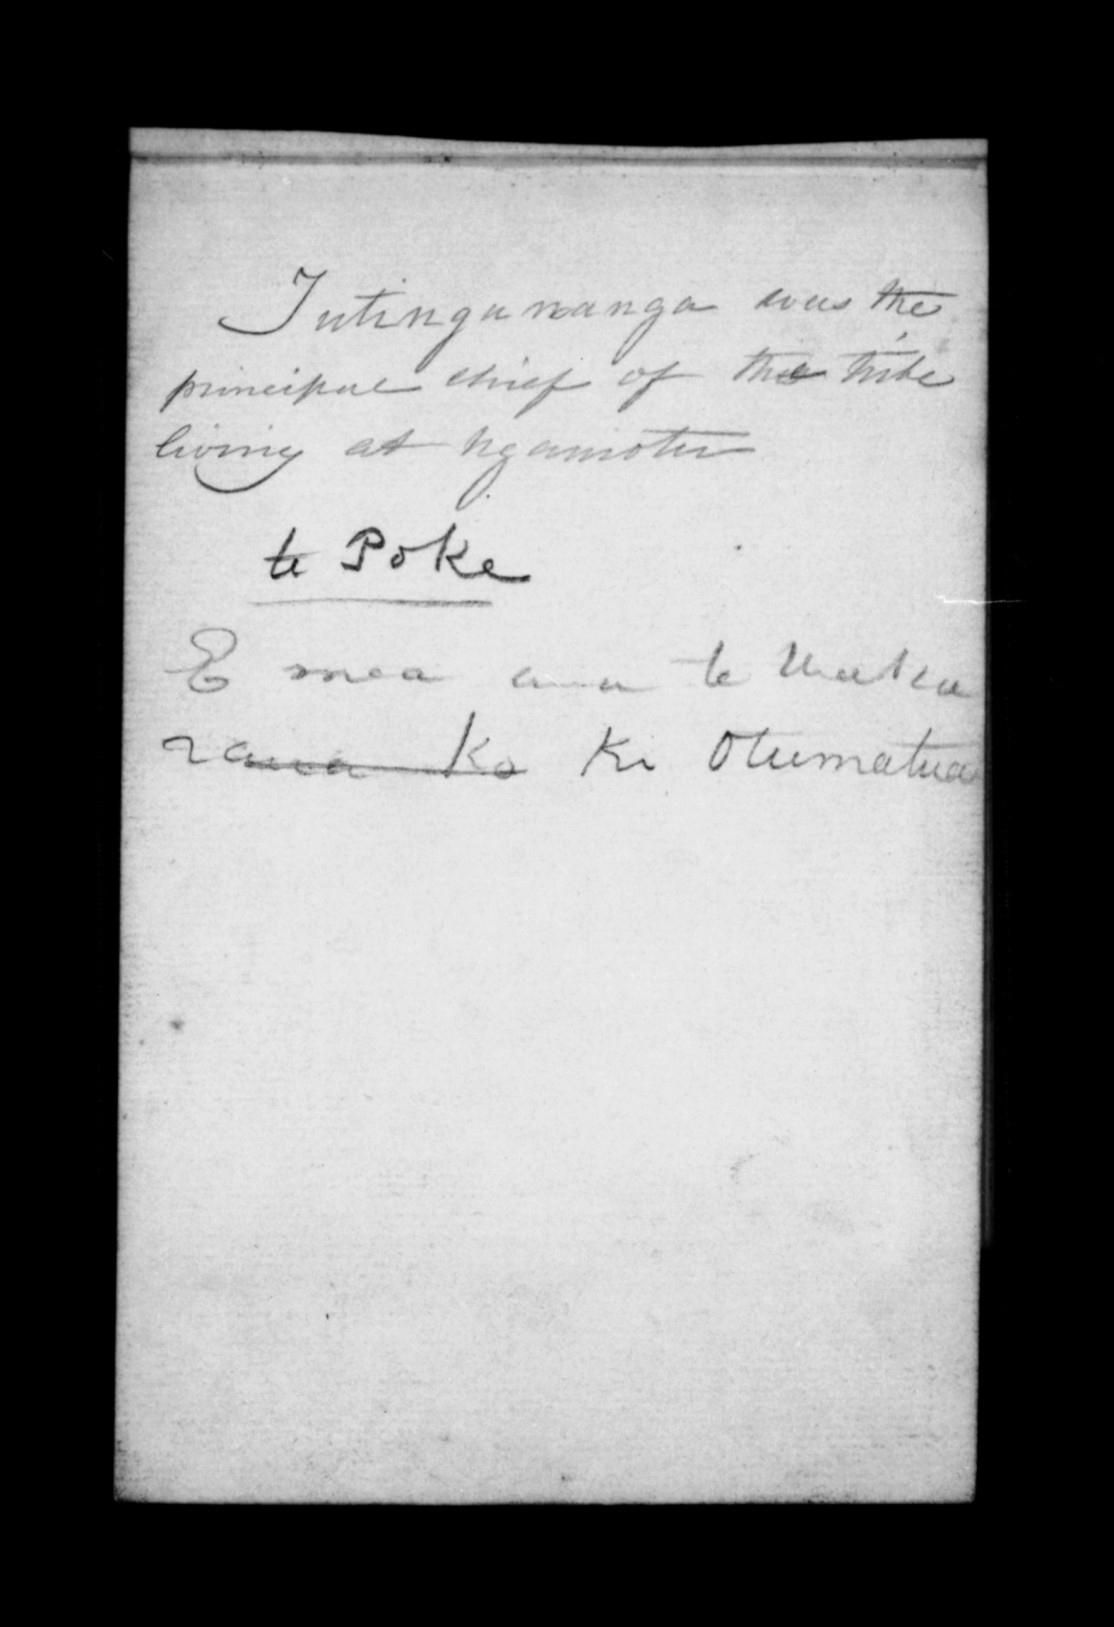 Tutinganananga was the
principal chief of the tribe
living at Ngamotu
te Poke
E mea ana te
raua ko Ki Otumatua